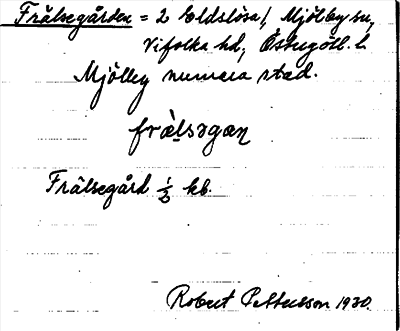 Frälsegården = 2 Eldslösa/, Mjölby sn,
Vifolka hd, Östergötl. l.
Mjölby numera stad.
frä̀lsəgaɳ
Frälsegård ½ kb.
Robert Pettersson 1930.